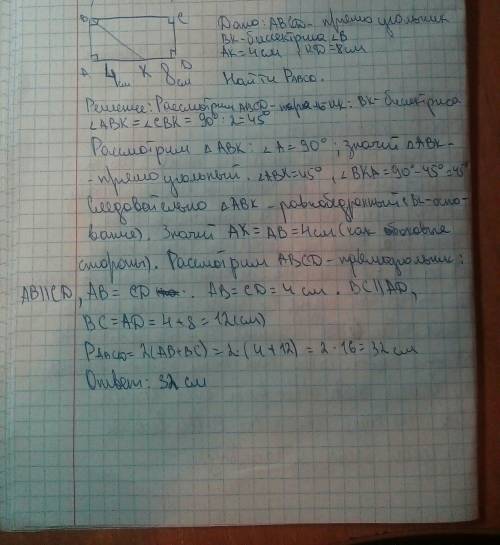 B C
Дано: ABCD - прямоугольник
BK - биссектриса ∠B
AK = 4 см, KD = 8 см
A 4 см K 8 см D
Найти P ABCD.
Решение: Рассмотрим ABCD - : BK - биссектриса
∠ABK = ∠CBK = 90° : 2 = 45°
Рассмотрим △ABK: ∠A = 90°; значит △ABK -
- прямоугольный. ∠ABK = 45°, ∠BKA = 90° - 45° = 45°
Следовательно △ABK - равнобедренный (BK - осно-
вание). Значит AK = AB = 4 см (как боковые
стороны). Рассмотрим ABCD - прямоугольник:
AB || CD, AB = CD. AB = CD = 4 см. BC || AD,
BC = AD = 4 + 8 = 12 (см)
P ABCD = 2(AB + BC) = 2 · (4 + 12) = 2 · 16 = 32 см
Ответ: 32 см